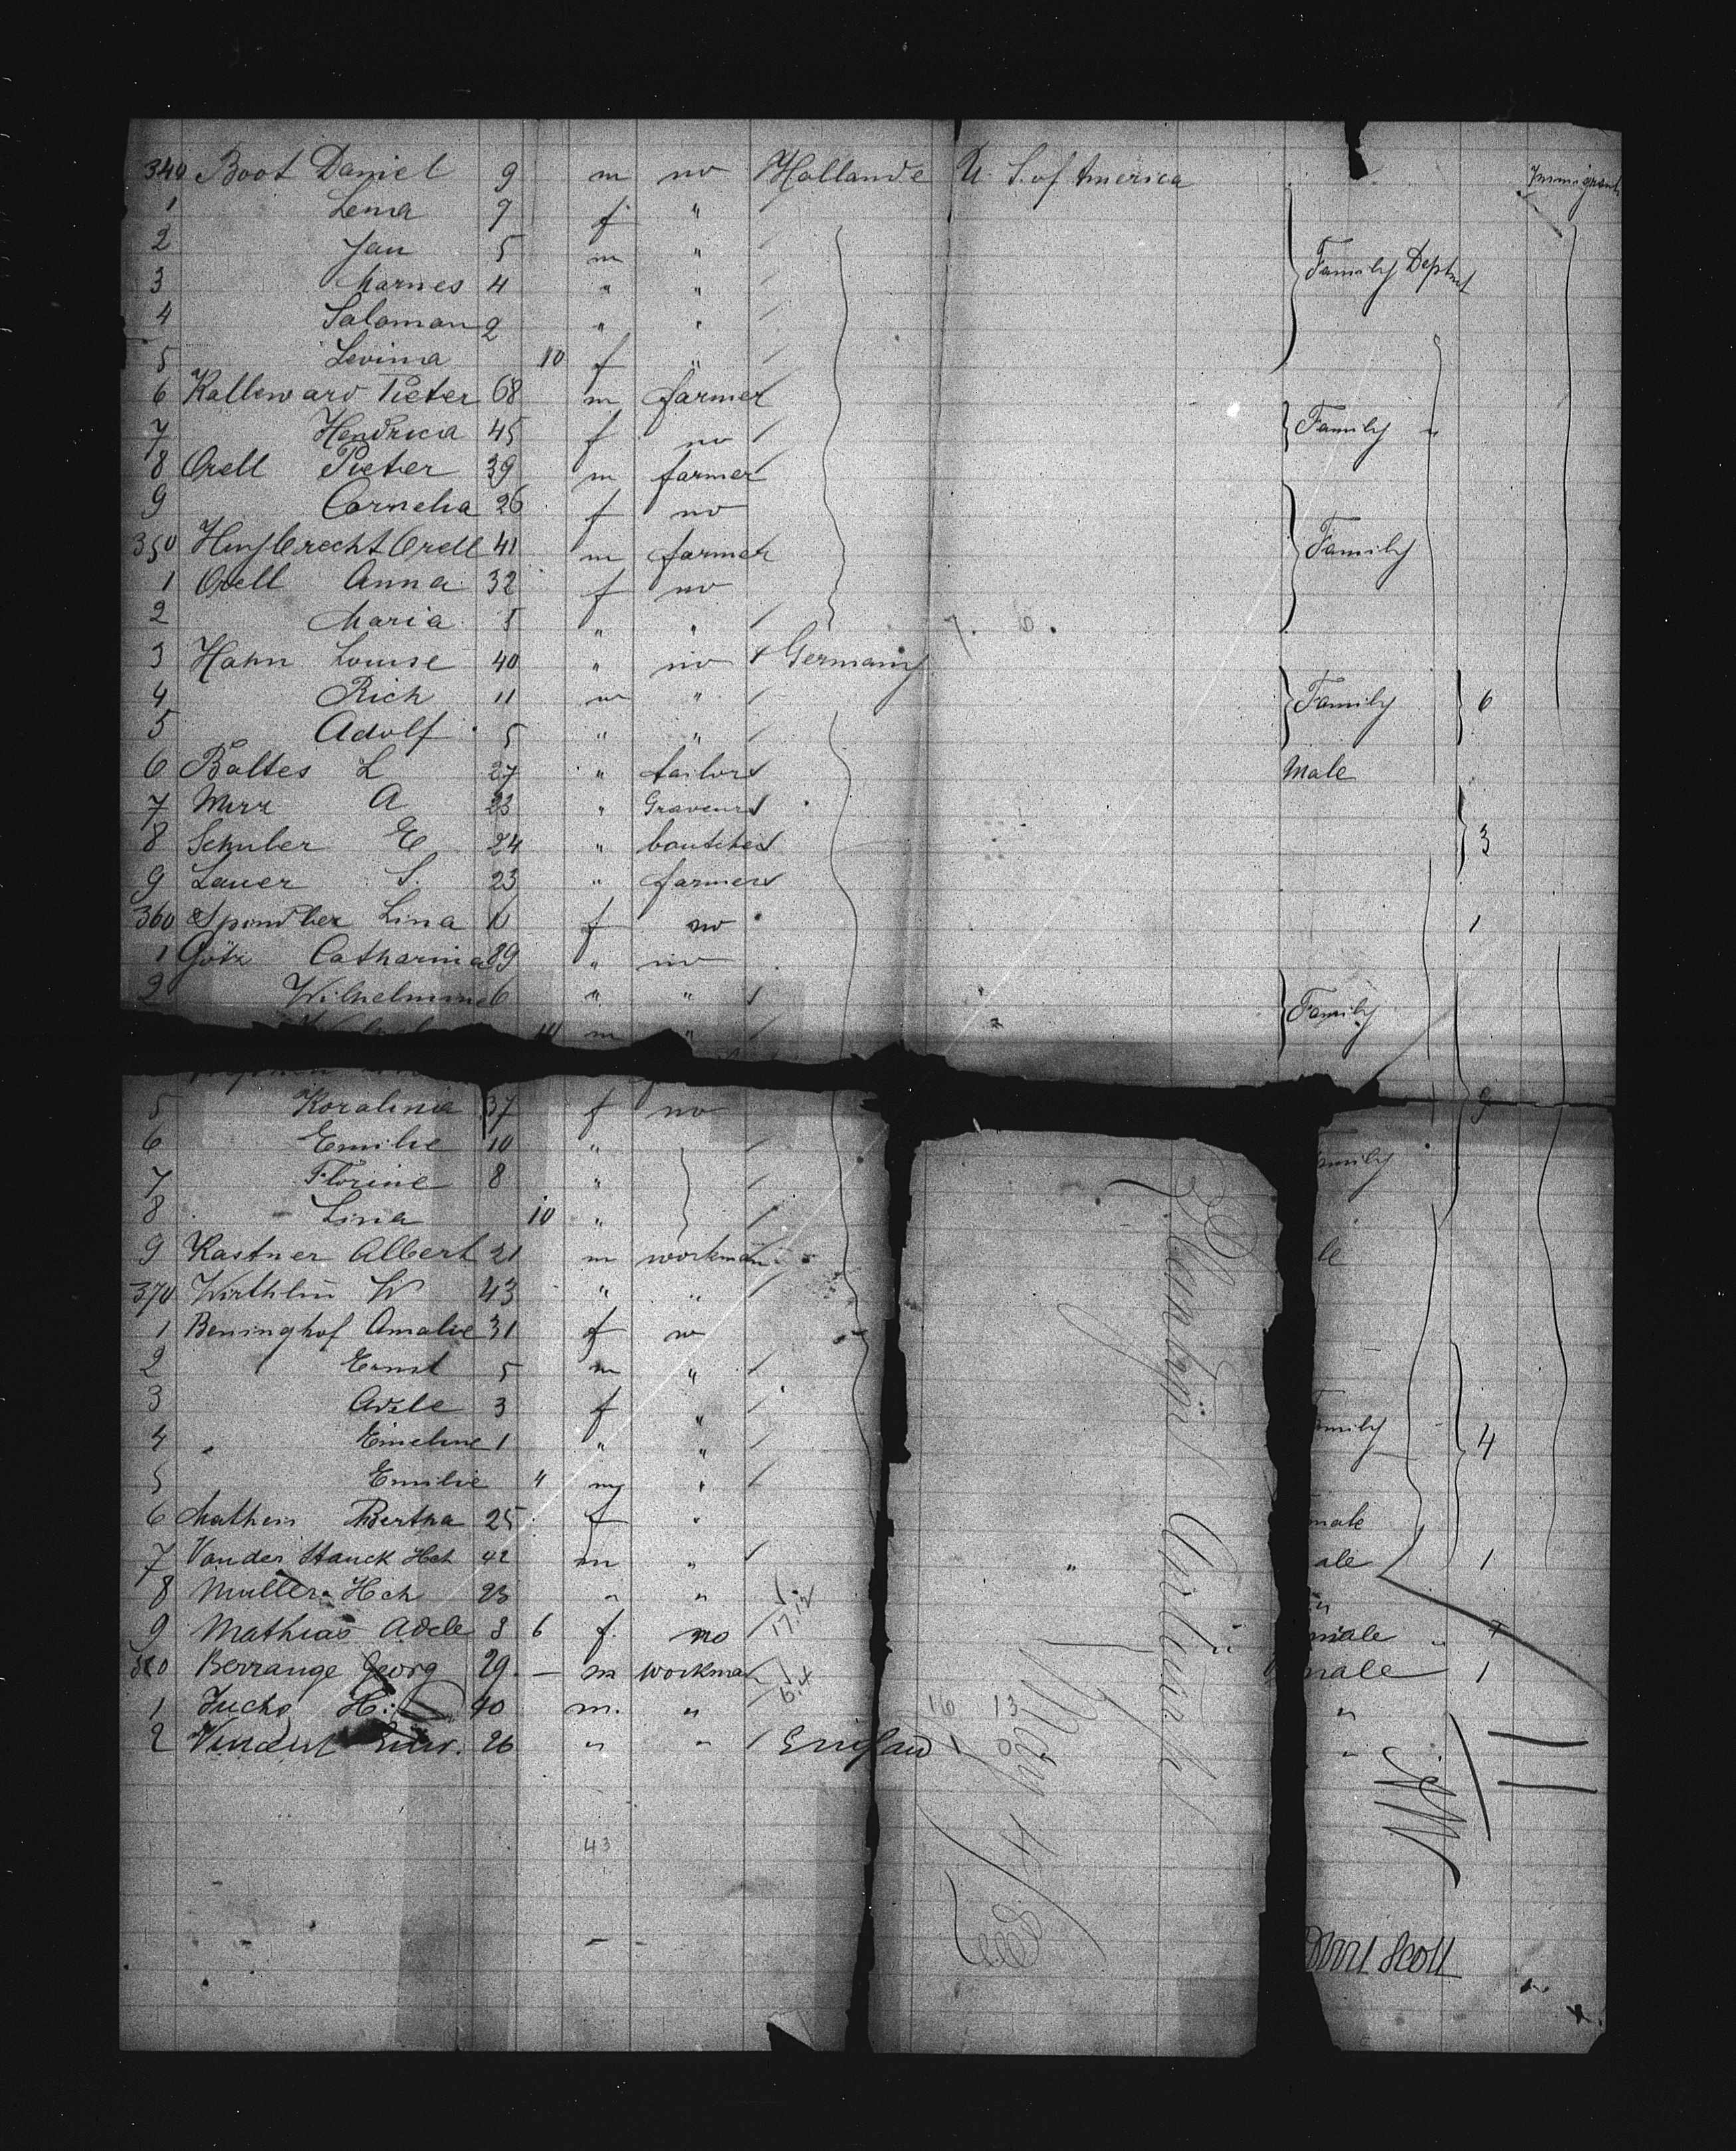 340 Boot Daniel 9 m no Hollande U. S. of America Immigrant
1 Lena 7 f "
2 Jan 5 m " Family Deptmt
3 Marnes 4 " "
4 Salomon 2 " "
5 Levina 10 f "
6 Kalleward Pieter 68 m farmer
7 Hendrica 45 f no Family "
8 Orell Pieter 39 m farmer
9 Cornelia 26 f no
350 Huijbrecht Orell 41 m farmer Family
1 Orell Anna 32 f no
2 Maria " "
3 Hahn Louise 40 " no Germany
4 Rich 11 m " Family 6
5 Adolf 5 " "
6 Baltes L 27 " tailor Male
7 Merz A 23 " Graveur
8 Schuler E 24 " boutcher 3
9 Lauer S. 23 " farmer
360 Spindler Lina f no 1
1 Götz Catharina 29 " no
2 Wilhelmine 6 " " Family
m "
5 Koralina 37 f no 9
6 Emilie 10 "
7 Florine 8 " amily
8 Lina 10 "
9 Kastner Albert 21 m workman le
370 Wirthlin W 43 " "
1 Beninghof Amalie 31 f no
2 Ernst 5 m "
3 Adele 3 f "
4 Emeline 1 " " amily 4
5 Emilie 4 "
6 Mathein Bertha 25 f " male
7 Vander Stauck Hch 42 m " " ale 1
8 Muller Hch 23 " "
9 Mathias Adele 3 6 f. no male
380 Berrange Georg 29 — m workman male 1
1 Fuchs H. 40 m. " "
2 26 " " England "
16 13
1 0
43
Scott